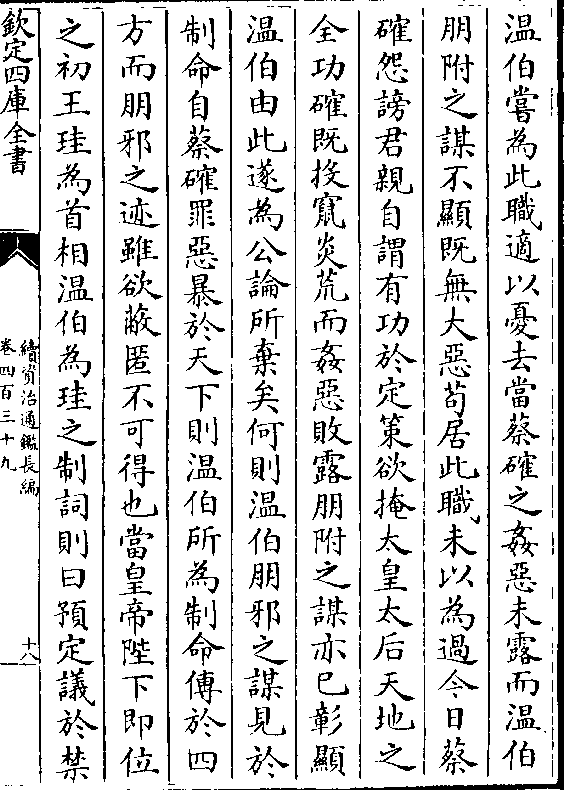 温伯嘗為此職適以憂去當蔡確之姦惡未露而温伯
朋附之謀不顯既無大惡苟居此職未以為過今日蔡
確怨謗君親自謂有功於定策欲掩太皇太后天地之
全功確既投竄炎荒而姦惡敗露朋附之謀亦已彰顯
温伯由此遂為公論所棄矣何則温伯朋邪之謀見於
制命自蔡確罪惡暴於天下則温伯所為制命傳於四
方而朋邪之迹雖欲蔽匿不可得也當皇帝陛下即位
之初王珪為首相温伯為珪之制詞則曰預定議於禁
欽定四庫全書
續資治通鑑長編
卷四百三十九
十八